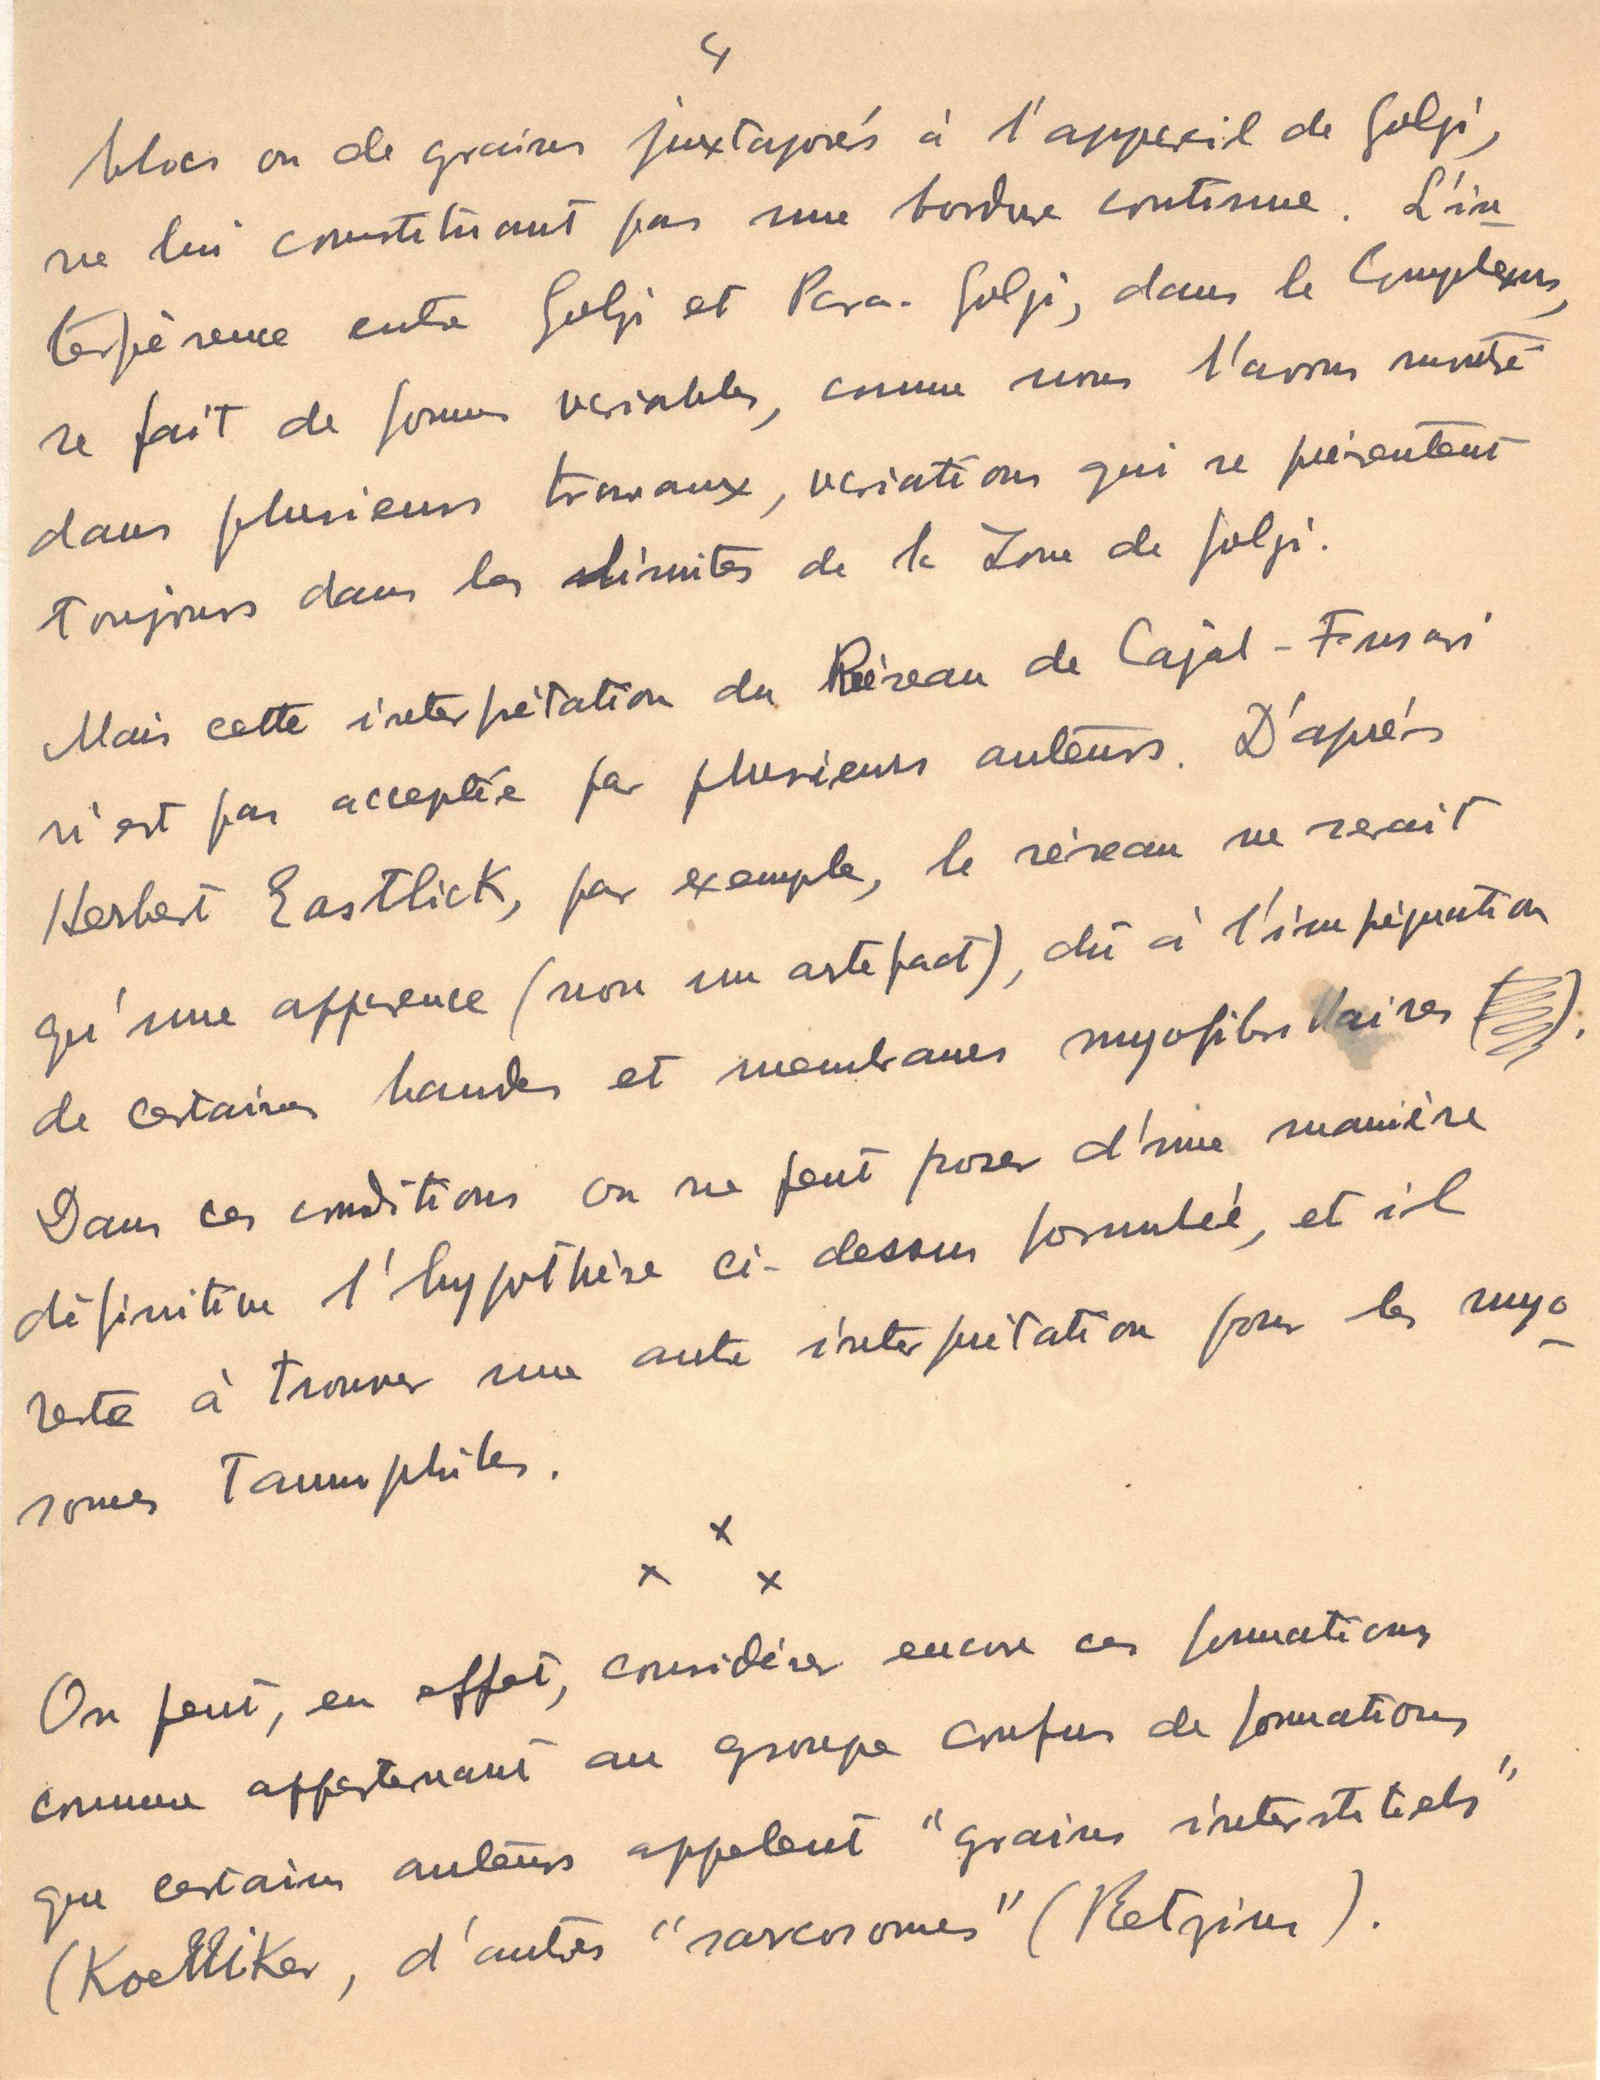 4
blocs ou de grains juxtaposés à l'appareil de Golgi,
ne lui constituant pas une bordure continue. L'in-
terférence entre Golgi et Para-Golgi, dans le Complexus,
se fait de formes variables, comme nous l'avons montré
dans plusieurs travaux, variations qui se présentent
toujours dans les limites de la Zone de Golgi.
Mais cette interprétation du Réseau de Cajal-Fusari
n'est pas acceptée par plusieurs auteurs. D'après
Herbert Eastlick, par exemple, le réseau ne serait
qu'une apparence (non un artefact), dû à l'imprégnation
de certaines bandes et membranes myofibrillaires ( ).
Dans ces conditions on ne peut poser d'une manière
définitive l'hypothèse ci-dessus formulée, et il
reste à trouver une autre interprétation pour les myo-
somes tannophiles.
x
x x
On peut, en effet, considérer encore ces formations
comme appartenant au groupe confus de formations
que certains auteurs appelent "grains interstitiels"
(Koelliker, d'autres "sarcosomes" (Retzius).